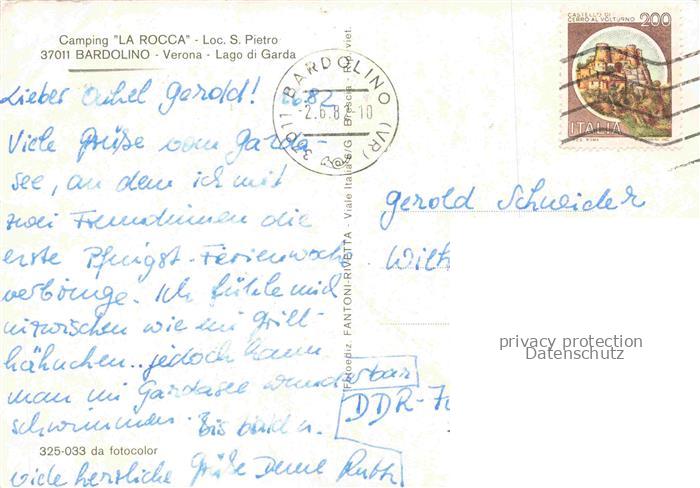 Camping "LA ROCCA" - Loc. S. Pietro
37011 BARDOLINO - Verona - Lago di Garda
Lieber Onkel Gerold! 82
Viele Grüße vom Garda-
see, an dem ich mit
zwei Freundinnen die
erste Pfingst-Ferienwoche
verbringe. Ich fühle mich
inzwischen wie ein Grill-
hähnchen.. jedoch kann
man im Gardasee wunderbar
schwimmen. Bis bald u.
325-033 da fotocolor
viele herzliche Grüße Deine Ruth
37011 BARDOLINO (VR)
-2.6.8 -10
Fotoediz. FANTONI-RIVETTA - Viale Italia
Brescia - Rip. viet.
CASTELLO DI
CERRO AL VOLTURNO 200
ITALIA
Gerold Schneider
DDR-
privacy protection
Datenschutz